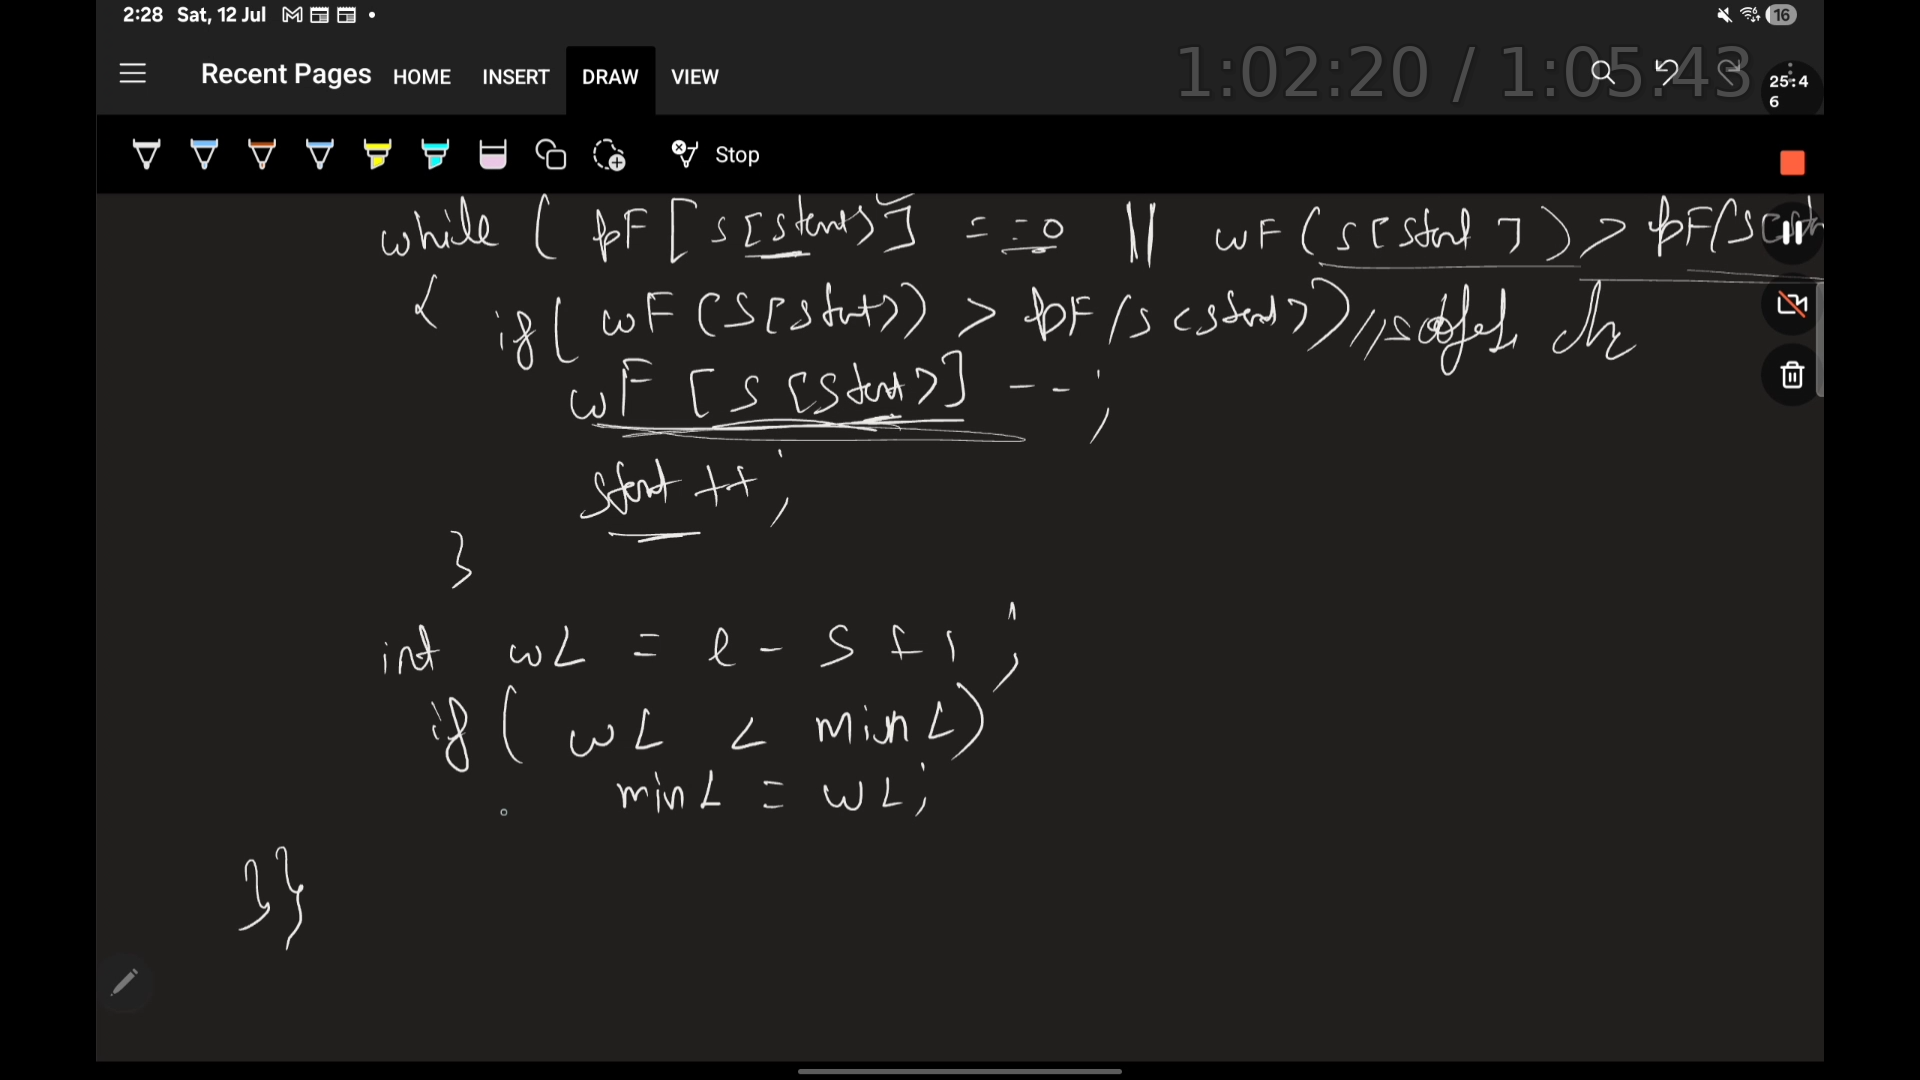 2:28 Sat, 12 Jul 16
Recent Pages HOME INSERT DRAW VIEW
1:02:20 / 1:05:43
25:4
6
Stop
while ( pF [ s [start] ] == 0 || wF ( s [ start ] ) > pF ( s [
{ if ( wF ( s [ start ] ) > pF ( s [ start ] ) ) //
wF [ s [ start ] ] -- ;
start ++ ;
}
int wL = e - s + 1 ;
if ( wL < minL )
minL = wL ;
}}